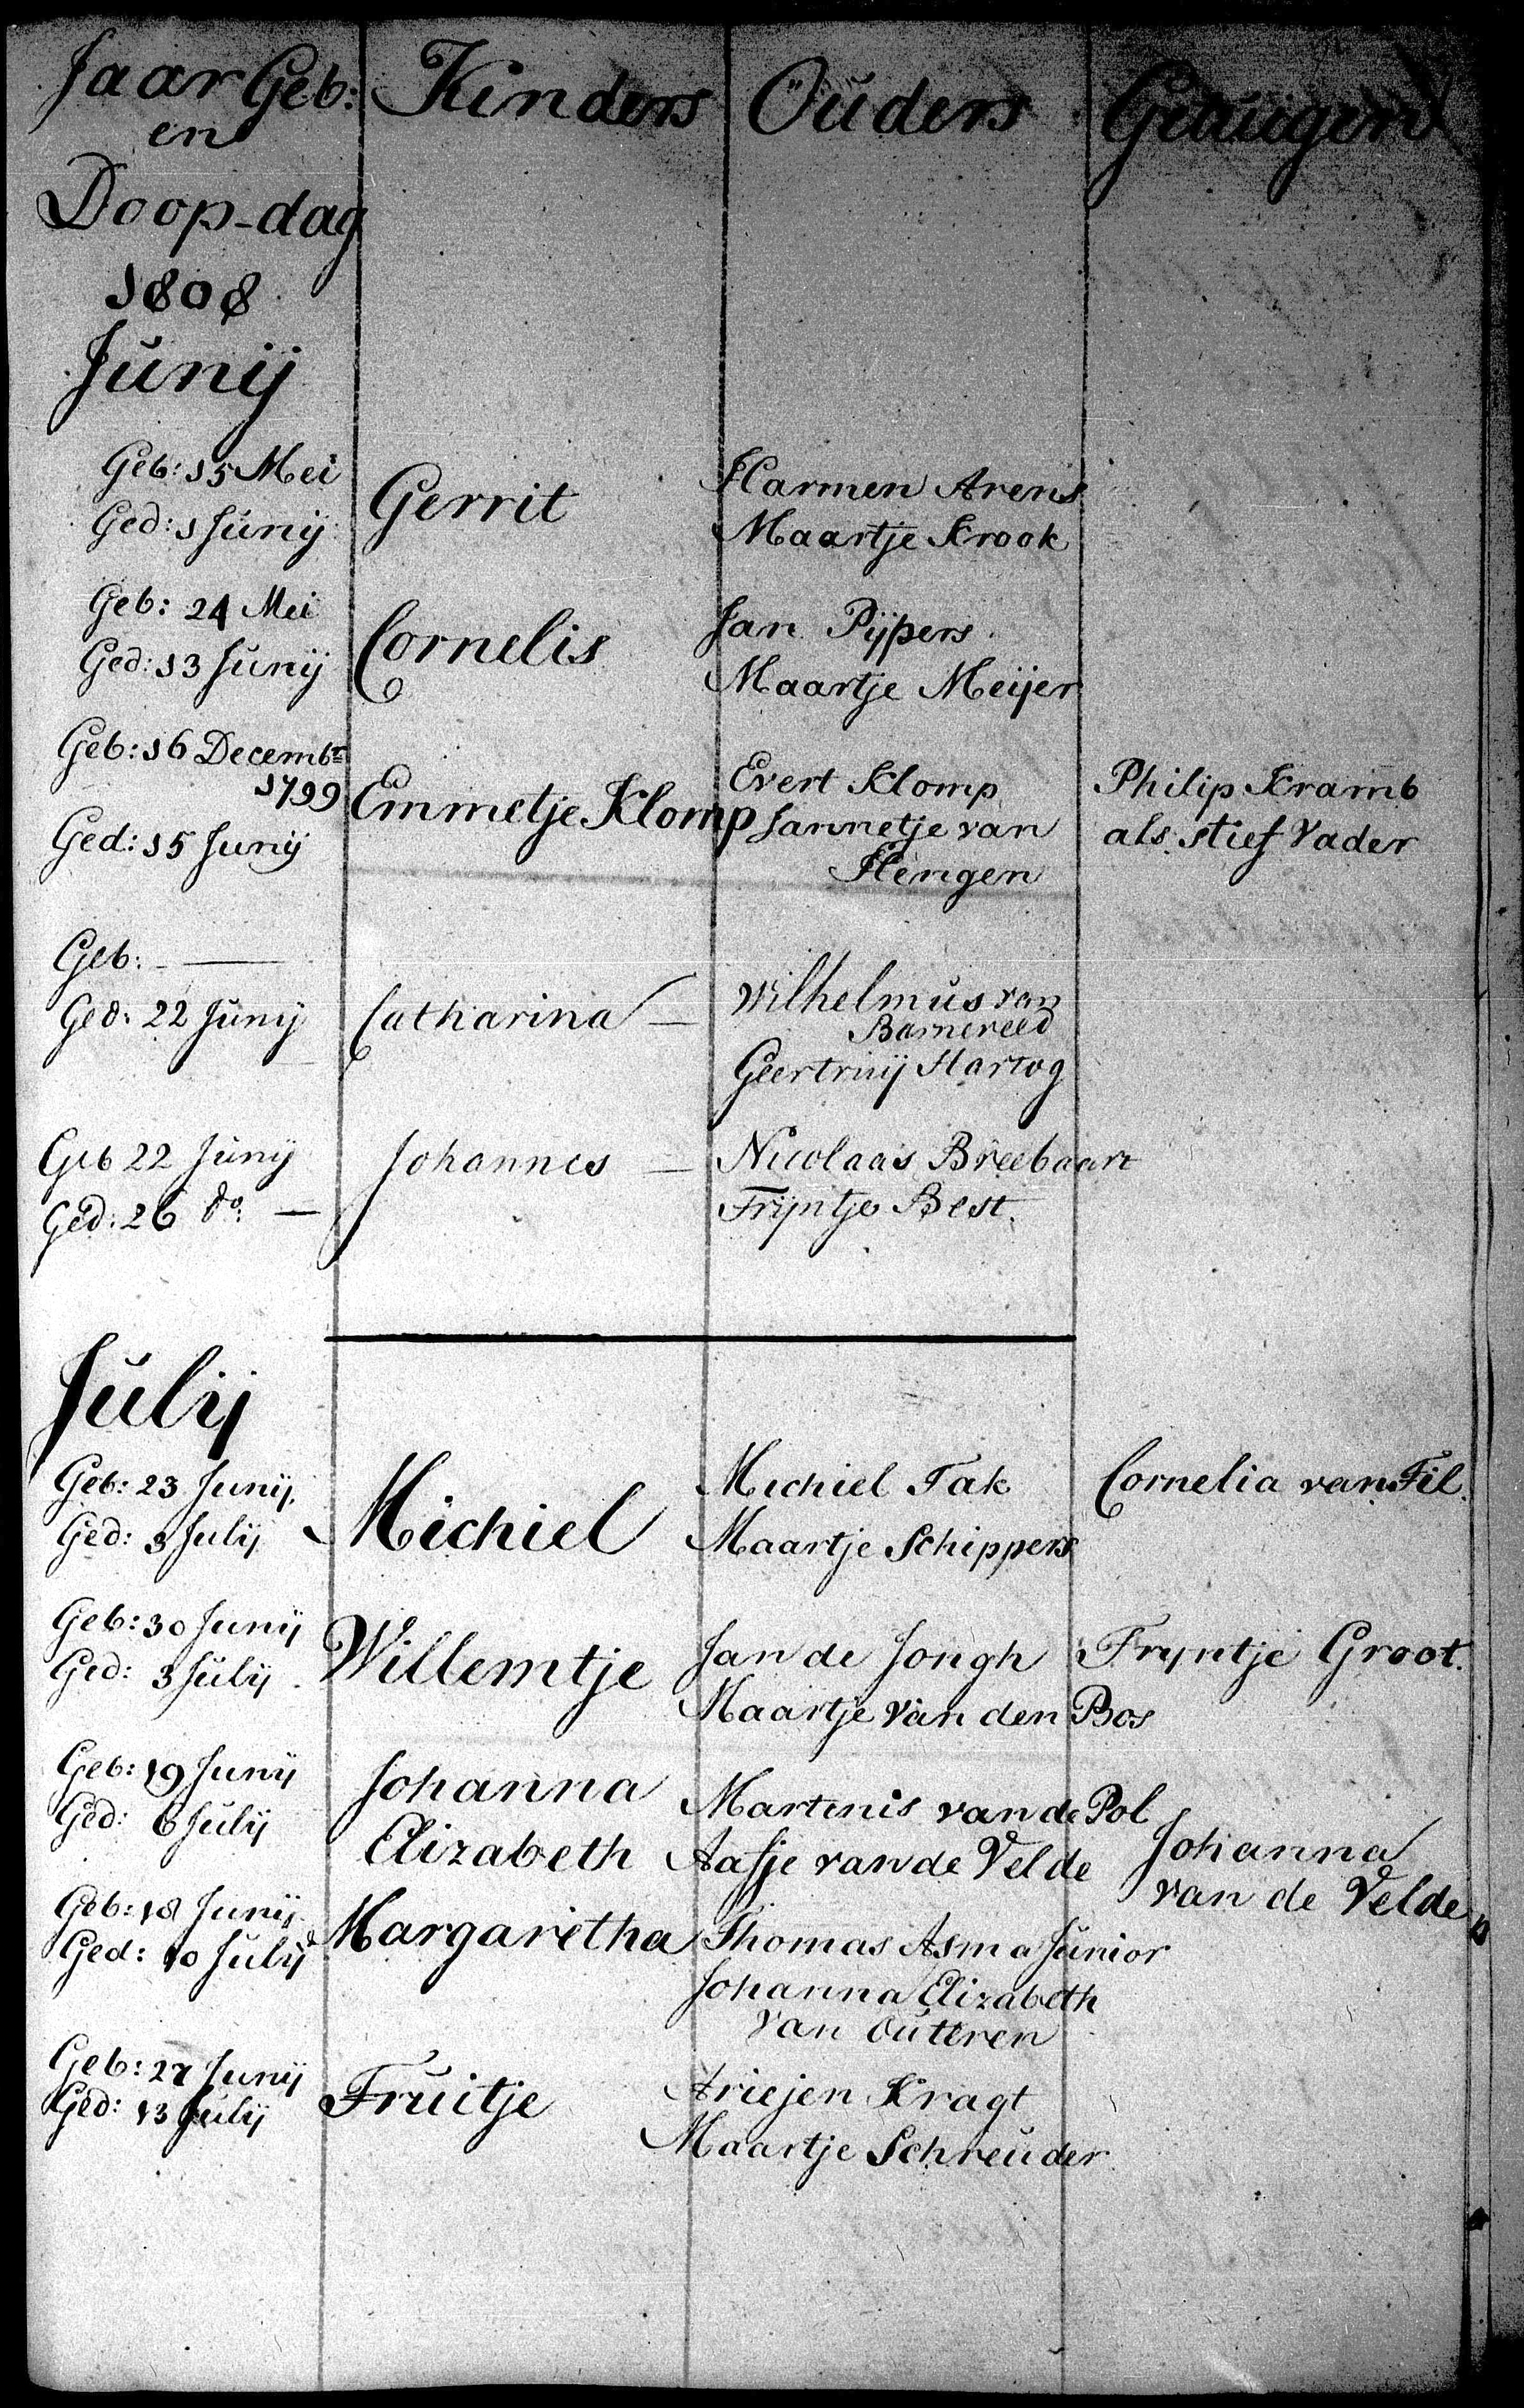 Jaar Geb:
en
Doop-dag
1808
Kinders
Ouders
Getuigen
Junij
Geb: 15 Mei
Ged: 1 Junij
Gerrit
Harmen Arens
Maartje Krook
Geb: 24 Mei
Ged: 13 Junij
Cornelis
Jan Pijpers
Maartje Meijer
Geb: 16 Decembr
1799
Ged: 15 Junij
Emmetje Klomp
Evert Klomp
Jannetje van
Hengen
Philip Kramb
als stief Vader
Geb: —
Ged: 22 Junij
Catharina —
Wilhelmus van
Barneveld
Geertruij Hartog
Geb 22 Junij
Ged: 26 do: —
Johannes —
Nicolaas Breebaart
Trijntje Best.
Julij
Geb: 23 Junij
Ged: 3 Julij
Michiel
Michiel Tak
Maartje Schippers
Cornelia van Til.
Geb: 30 Junij
Ged: 3 Julij
Willemtje
Jan de Jongh
Maartje van den Bos
Trijntje Groot.
Geb: 19 Junij
Ged: 6 Julij
Johanna
Elizabeth
Martinis van de Pol
Aafje van de Velde
Johanna
van de Velde
Geb: 18 Junij
Ged: 10 Julij
Margaretha
Thomas Asma Junior
Johanna Elizabeth
van Outeren
Geb: 27 Junij
Ged: 13 Julij
Fruitje
Ariejen Kragt
Maartje Schreuder